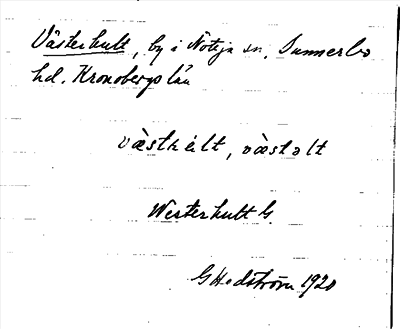 Västerhult, by i Nöteja sn, Sunnerbo
hd. Kronobergs län
væ̀sthu̇lt, væ̀stəlt
Westerhult G.
G Hedström 1920